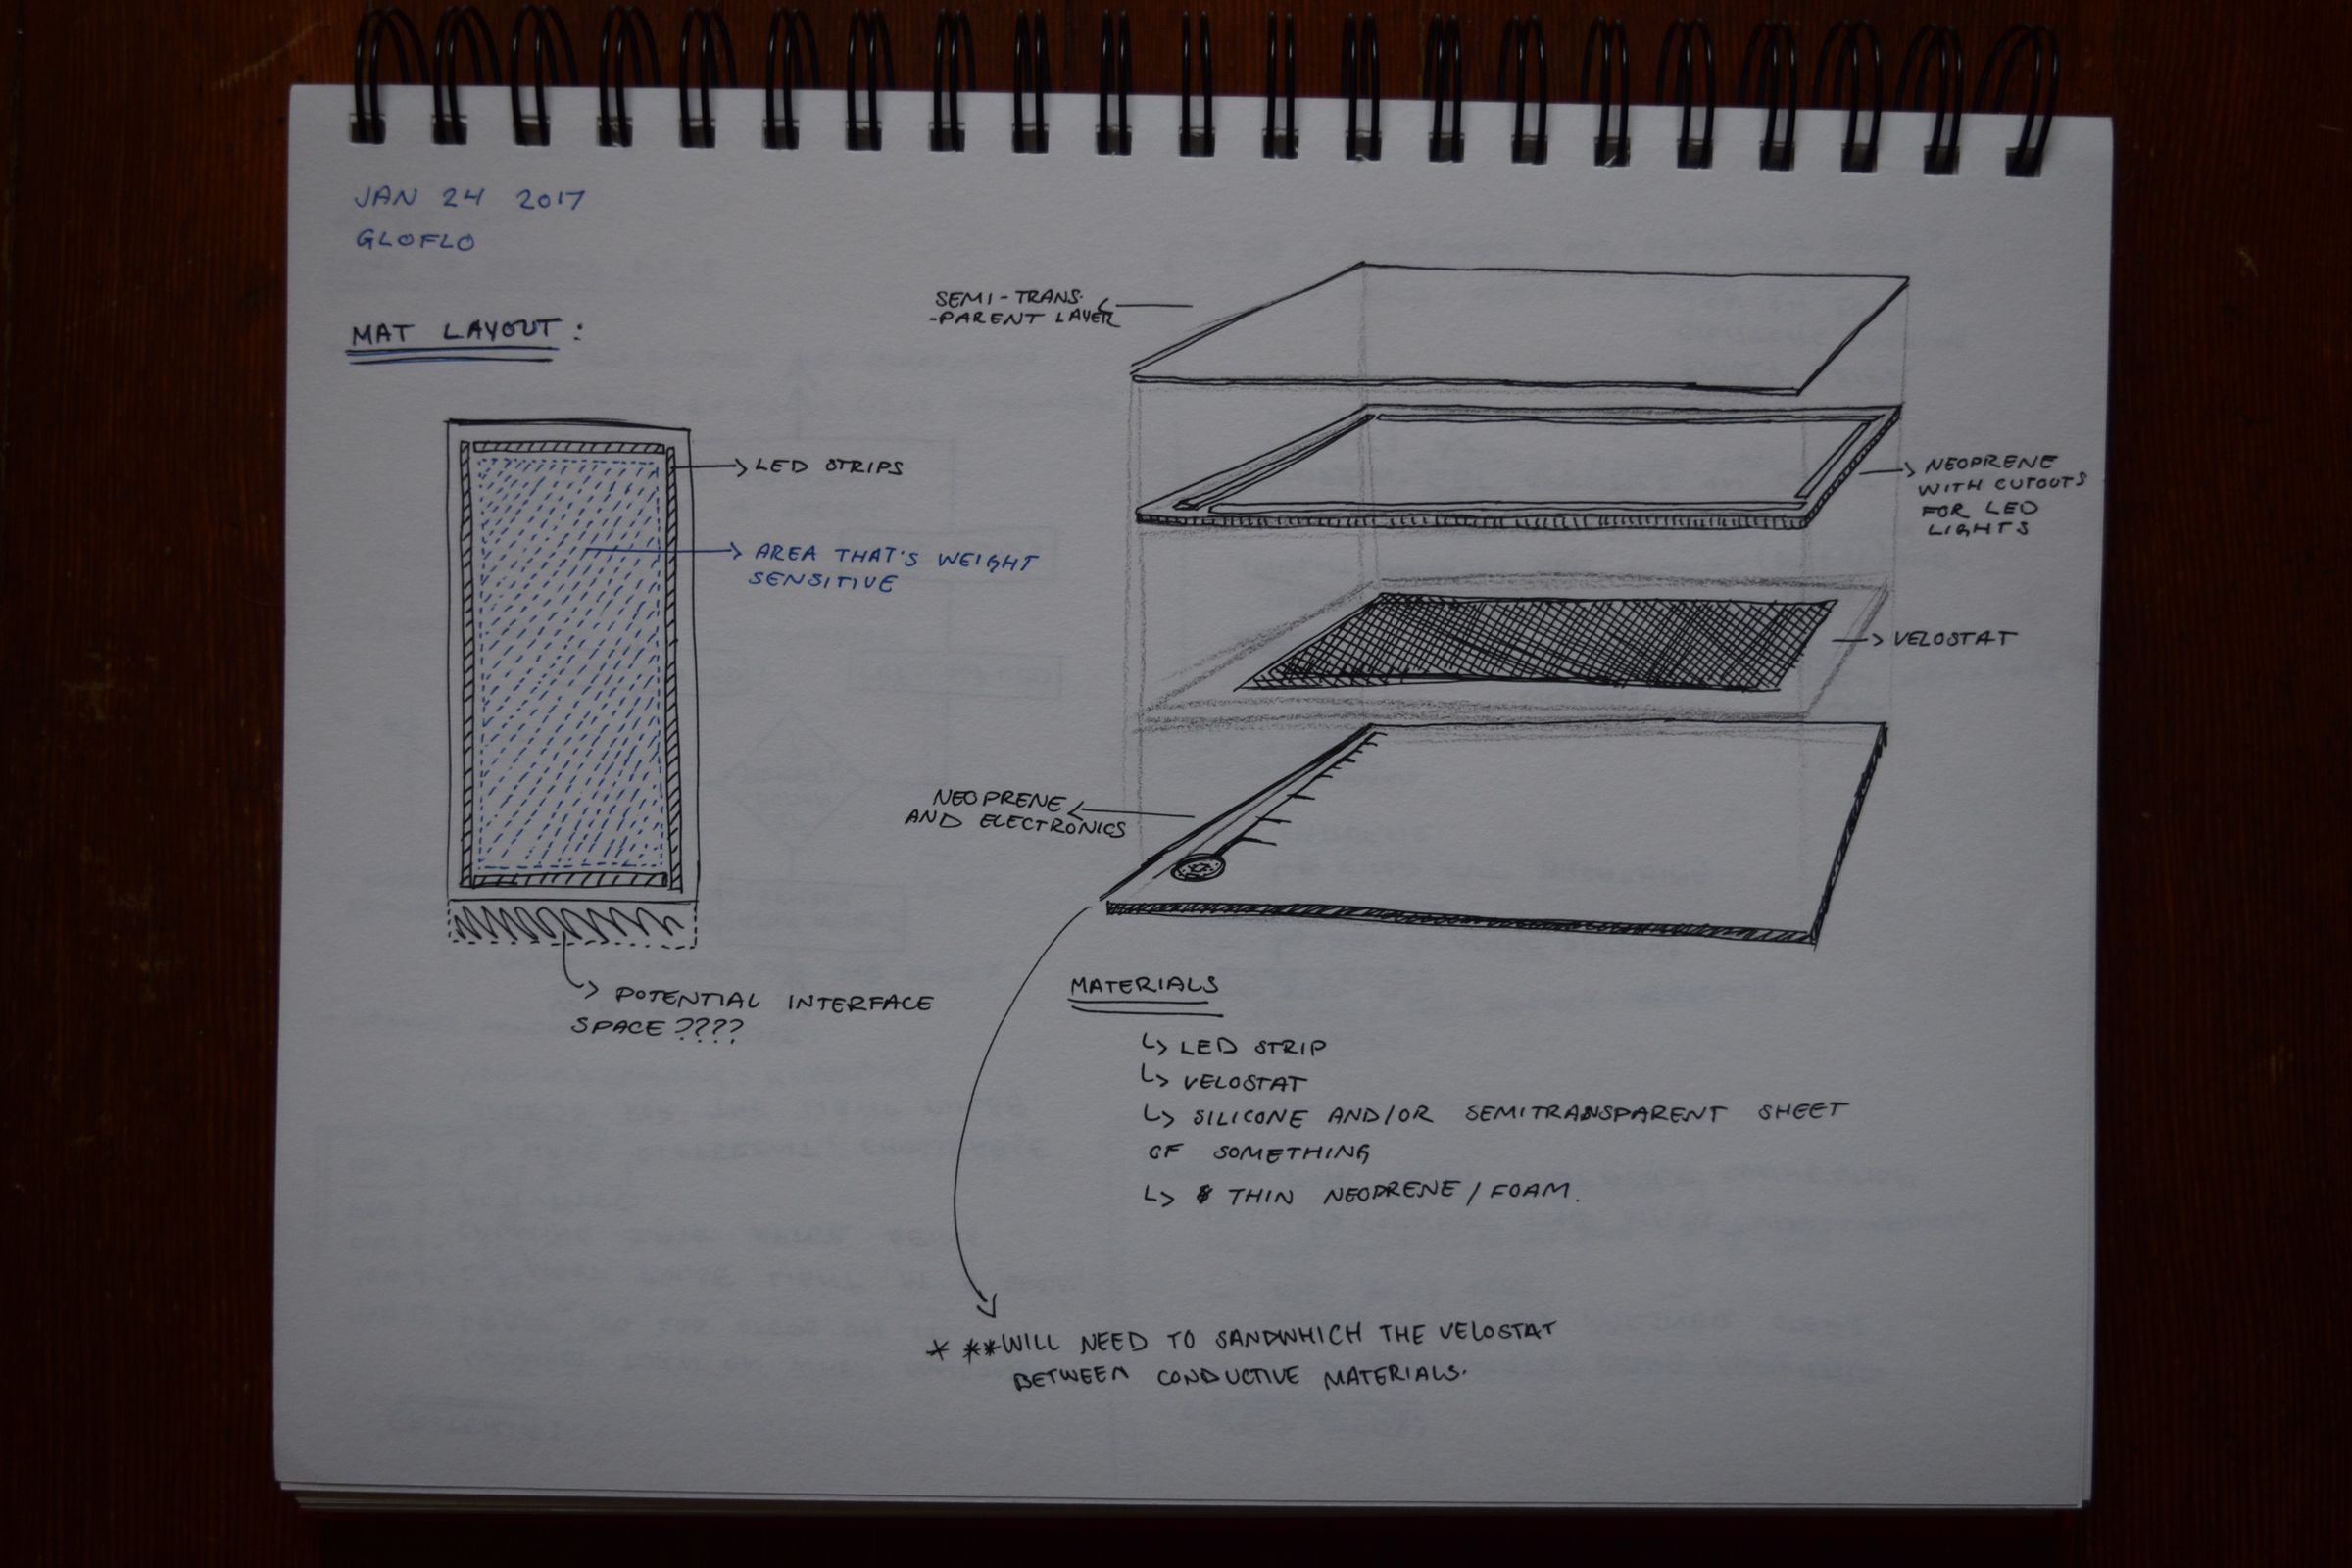 JAN 24 2017
GLOFLO
MAT LAYOUT :
LED STRIPS
AREA THAT'S WEIGHT
SENSITIVE
POTENTIAL INTERFACE
SPACE ????
SEMI-TRANS-
-PARENT LAYER
NEOPRENE
WITH CUTOUTS
FOR LED
LIGHTS
VELOSTAT
NEOPRENE
AND ELECTRONICS
MATERIALS
↳ LED STRIP
↳ VELOSTAT
↳ SILICONE AND/OR SEMITRANSPARENT SHEET
OF SOMETHING
↳ THIN NEOPRENE / FOAM.
* **WILL NEED TO SANDWHICH THE VELOSTAT
BETWEEN CONDUCTIVE MATERIALS.